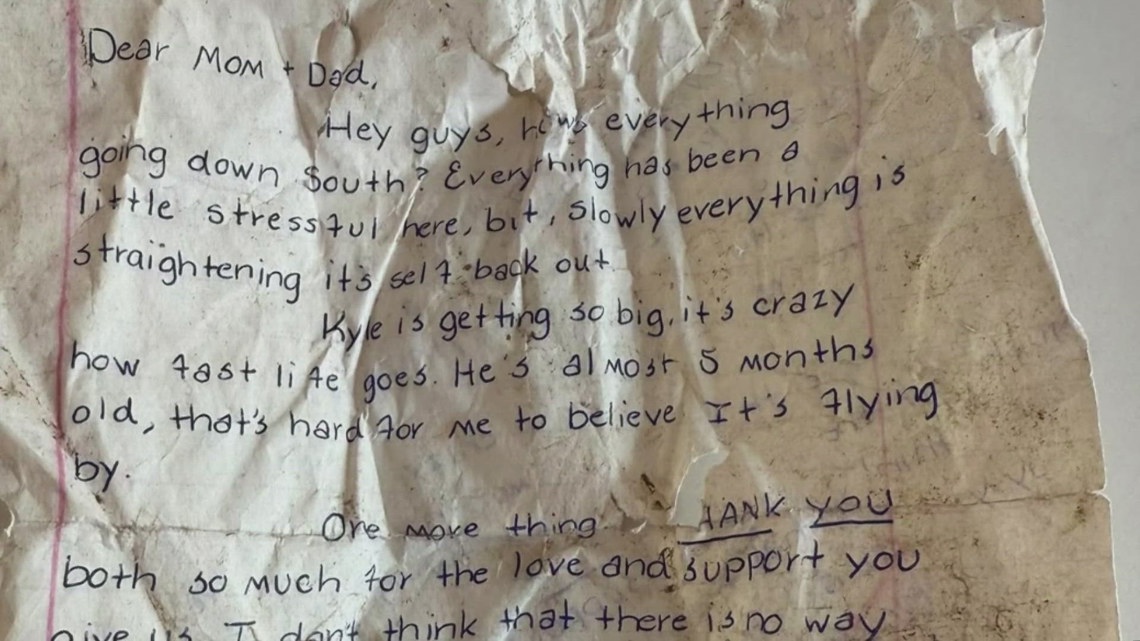 Dear Mom + Dad,
Hey guys, hows everything
going down South? Everything has been a
little stressful here, but, slowly everything is
straightening it's self back out
Kyle is getting so big, it's crazy
how fast life goes. He's almost 5 months
old, that's hard for me to believe It's flying
by.
One more thing HANK YOU
both so much for the love and support you
give us I don't think that there is no way